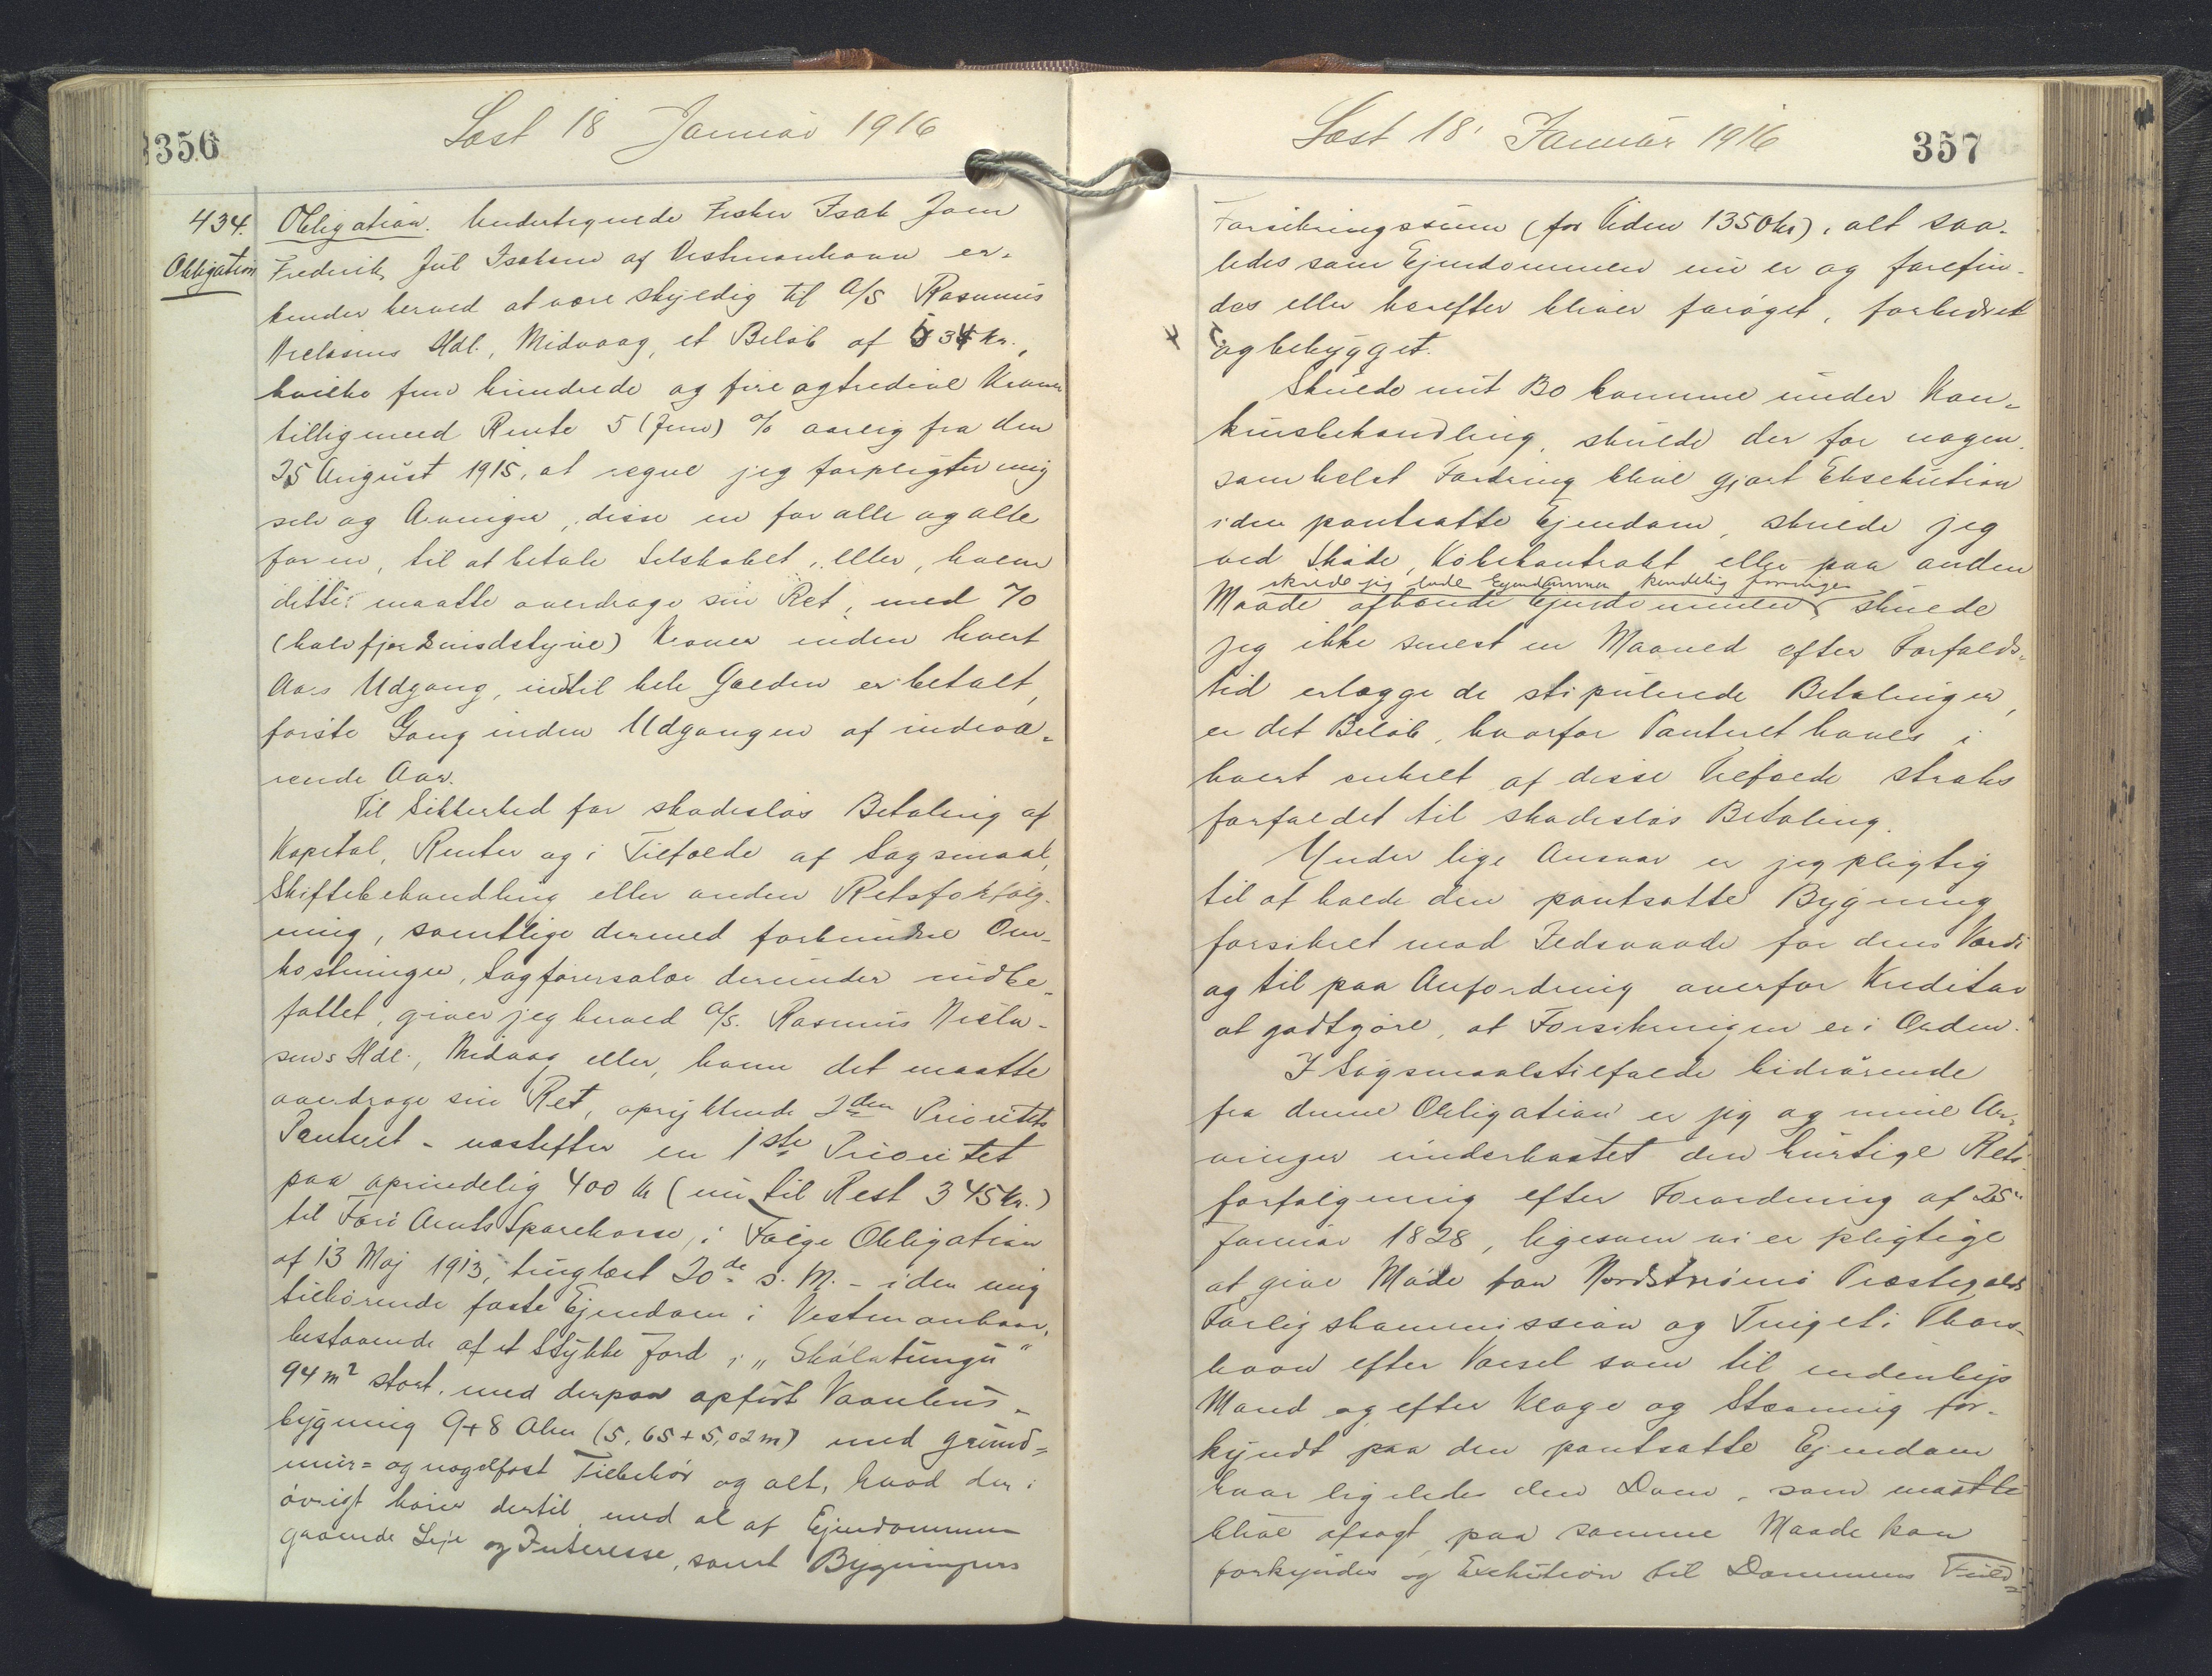 356
Læst 18 Januar 1916
434.
Obligation
Obligation. Undertegnede Fisker Isak Joen
Frederik Jul Isaksen af Vestmanhavn er-
kender herved at være skyldig til A/S Rasmus
Niclasens Hdl., Midvaag, et Beløb af 534 Kr.,
hvilke fem hundrede og fire og tredive Kroner
tilligemed Rente 5 (fem) % aarlig fra den
25 August 1915, at regne jeg forpligter mig
selv og Arvinger, disse en for alle og alle
for en, til at betale Selskabet, eller, hvem
dette maatte overdrage sin Ret, med 70
(halvfjerdsindstyve) Kroner inden hvert
Aars Udgang, indtil hele Gælden er betalt,
første Gang inden Udgangen af indevæ-
rende Aar.
Til Sikkerhed for skadesløs Betaling af
Kapital, Renter og i Tilfælde af Sagsmaal,
Skiftebehandling eller anden Retsforfølg-
ning, samtlige dermed forbundne Om-
kostninger, Sagførersalær derunder indbe-
fattet, giver jeg herved A/S. Rasmus Nicla-
sens Hdl., Midvaag eller, hvem det maatte
overdrage sin Ret, oprykkende 2den Prioritets
Panteret - næstefter en 1ste Prioritet
paa oprindelig 400 Kr (nu til Rest 345 Kr.)
til Færø Amts Sparekasse, i Følge Obligation
af 13 Maj 1913, tinglæst 20de s. M. - i den mig
tilhørende faste Ejendom i Vestmanhavn,
bestaaende af et Stykke Jord i "Skálatungu"
94 m² stort, med derpaa opført Vaanhus-
bygning 9+8 Alen (5,65+5,02 m) med grund-
mur= og nagelfast Tilbehør og alt, hvad der i
øvrigt hører dertil, med al af Ejendommen
gaaende Leje og Interesse, samt Bygningens
Læst 18' Januar 1916
357
Forsikringssum (for Tiden 1350 kr), alt saa-
ledes som Ejendommen nu er og forefin-
des eller herefter bliver forøget, forbedret
og bebygget.
Skulde mit Bo komme under Kon-
kursbehandling, skulde der for nogen
somhelst Fordring blive gjort Eksekution
i den pantsatte Ejendom, skulde jeg
ved Skøde, Købekontrakt eller paa anden
skulde jeg lade Ejendommen kendelig forringes
Maade afhænde Ejendommen skulde
jeg ikke senest en Maaned efter Forfalds-
tid erlægge de stipulerede Betalinger,
er det Beløb, hvorfor Panteret haves i
hvert enkelt af disse Tilfælde straks
forfaldet til skadesløs Betaling.
Under lige Ansvar er jeg pligtig
til at holde den pantsatte Bygning
forsikret mod Ildsvaade for dens Værdi
og til paa Anfordring overfor Kreditor
at godtgøre, at Forsikringen er i Orden.
I Sagsmaalstilfælde hidrørende
fra denne Obligation er jeg og mine Ar-
vinger underkastet den hurtige Rets-
forfølgning efter Forordning af 25'
Januar 1828, ligesom vi er pligtige
at give Møde for Nordstrømø Præstegælds
Forligskommission og Tinget i Thors-
havn efter Varsel som til indenbys
Mand og efter Klage og Stævning for-
kyndt paa den pantsatte Ejendom
hvor ligeledes den Dom, som maatte
blive afsagt, paa samme Maade kan
forkyndes og Exekution til Dommens Fuld-